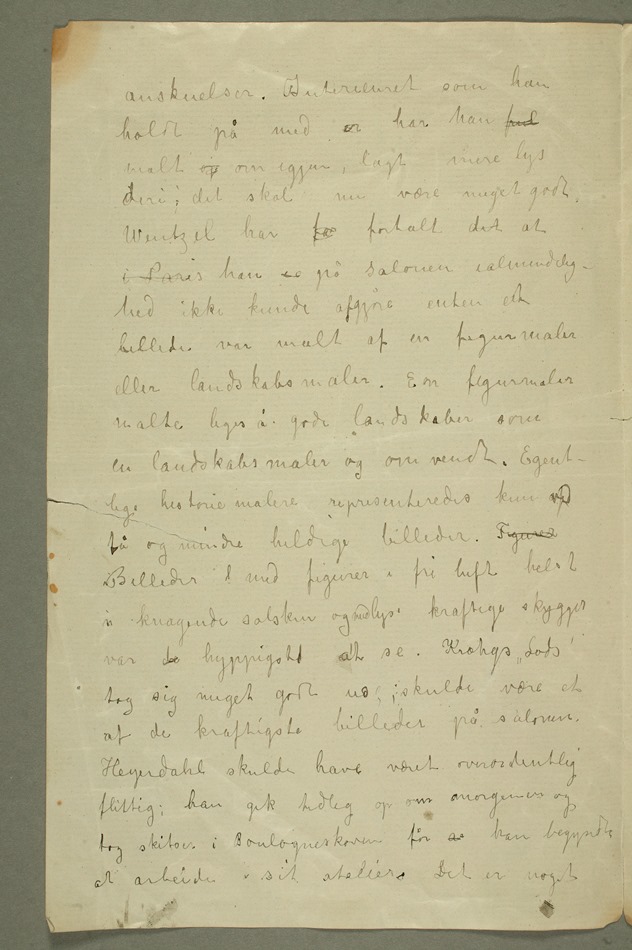 anskuelser. Interieuret som han
holdt på med er har han
malt op om igjen, lagt mere lys
deri; det skal nu være meget godt.
Wentzel har fortalt det at
i Paris han på Salonen ialmindelig-
hed ikke kunde afgjøre enten et
billede var malt af en figurmaler
eller landskabsmaler. En figurmaler
malte ligeså gode landskaber som
en landskabsmaler og omvendt. Egent-
lige historiemalere representeredes kun ved
få og mindre heldige billeder. Figurer
Billeder med figurer i fri luft helst
i knagende solskin og kraftige skygger
var hyppigst at se. Krohgs „Lods"
tog sig meget godt ud, skulde være et
af de kraftigste billeder på salonen.
Heyerdahl skulde have været overordentlig
flittig; han gik tidlig op om morgenen og
tog skitser i Boulogneskoven før han begyndte
at arbeide i sit atelier. Det er noget